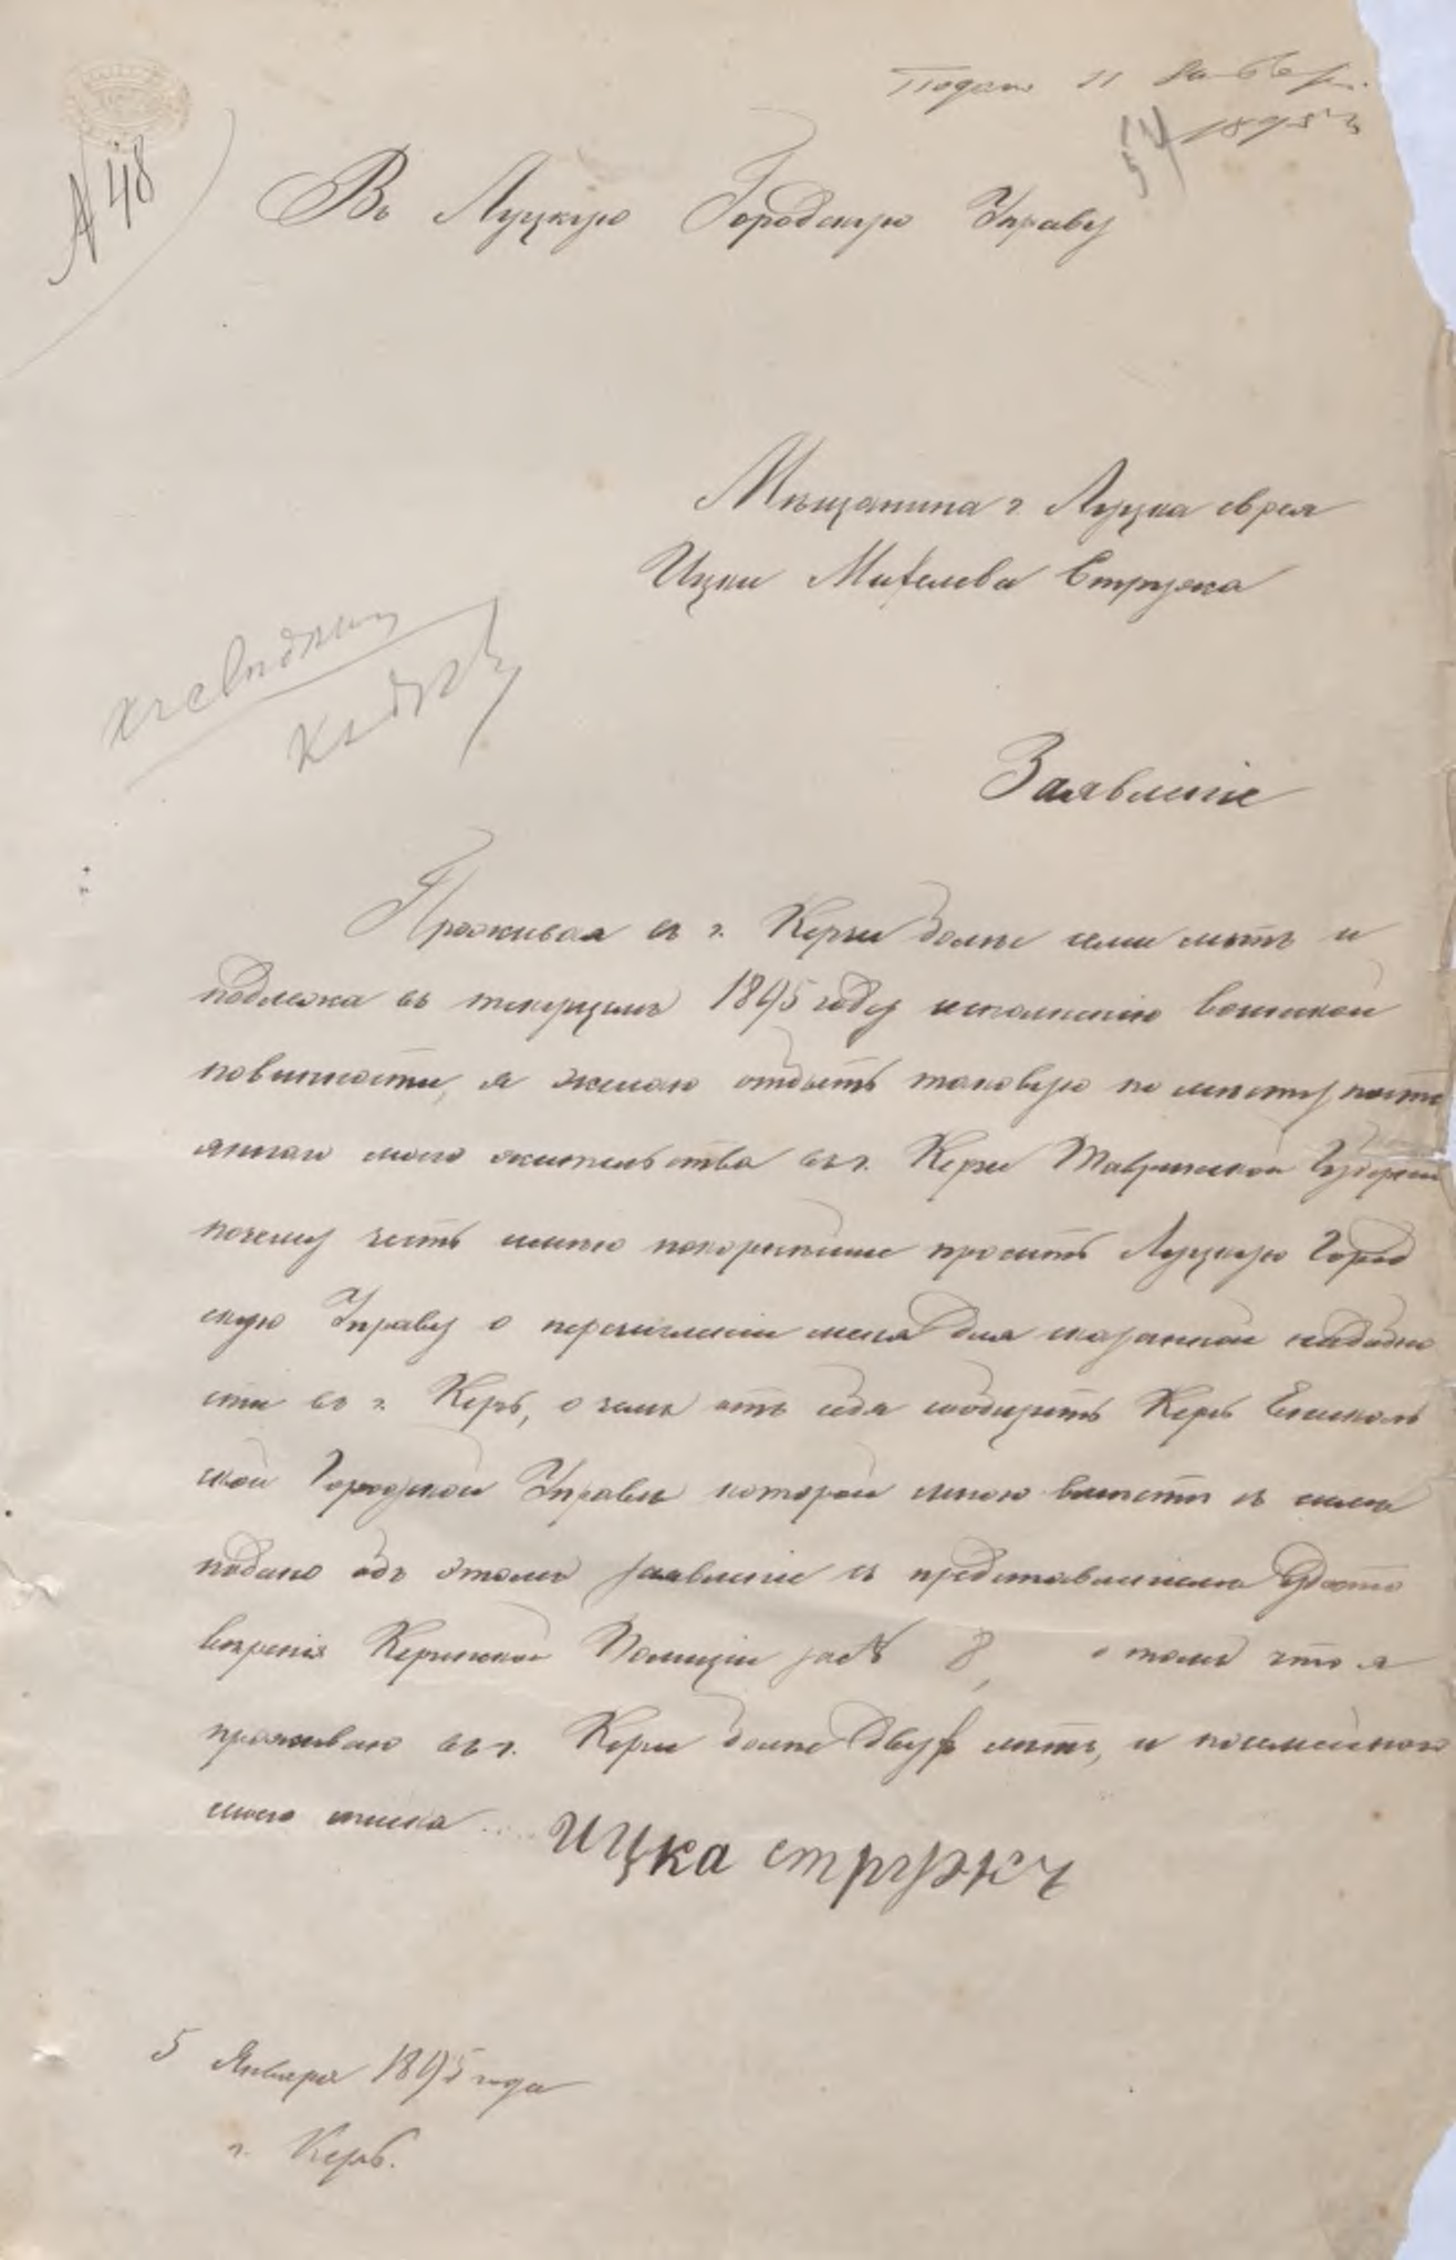 Подано 11 Января
1895 г
54
№ 48
Въ Луцкую Городскую Управу
Мѣщанина г. Луцка еврея
Ицки Михелева Стружка
Заявленіе
Проживая въ г. Керчи болѣе семи лѣтъ и
подлежа въ текущемъ 1895 году исполненію воинской
повинности, я желаю отбыть таковую по мѣсту посто
яннаго моего жительства въ г. Керчи Таврической Губерніи
почему честь имѣю покорнѣйше просить Луцкую Город
скую Управу о перечисленіи меня для сказанной надобно
сти въ г. Керчь, о чемъ отъ себя сообщить Керчь Ениколь
ской Городской Управѣ которой мною вмѣстѣ съ симъ
подано объ этомъ заявленіе съ представленіемъ удосто
вѣренія Керченской Полиціи за № 8, о томъ что я
проживаю въ г. Керчи болѣе двухъ лѣтъ, и посемейнаго
моего списка
ицка стружк
5 Января 1895 года
г. Керчь.